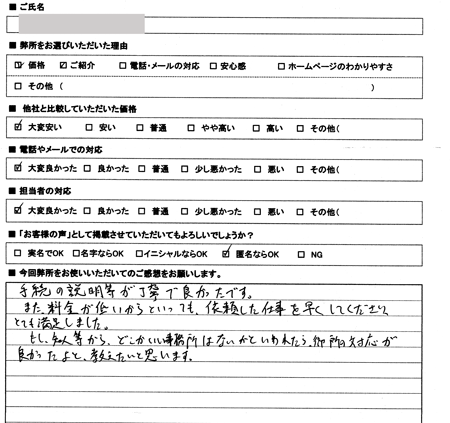 ■ ご氏名
■ 弊所をお選びいただいた理由
☑ 価格 ☑ ご紹介 □ 電話・メールの対応 □ 安心感 □ ホームページのわかりやすさ
□ その他 ( )
■ 他社と比較していただいた価格
☑ 大変安い □ 安い □ 普通 □ やや高い □ 高い □ その他(
■ 電話やメールでの対応
☑ 大変良かった □ 良かった □ 普通 □ 少し悪かった □ 悪い □ その他(
■ 担当者の対応
☑ 大変良かった □ 良かった □ 普通 □ 少し悪かった □ 悪い □ その他(
■ 「お客様の声」として掲載させていただいてもよろしいでしょうか?
□ 実名でOK □名字ならOK □イニシャルならOK ☑ 匿名ならOK □ NG
■ 今回弊所をお使いいただいてのご感想をお願いします。
手続の説明等が丁寧で良かったです。
また、料金が低いからといっても、依頼した仕事を早くしてくださり
とても満足しました。
もし、知人等から、どこかいい事務所はないかといわれたら、御所の対応が
良かったよと、教えたいと思います。